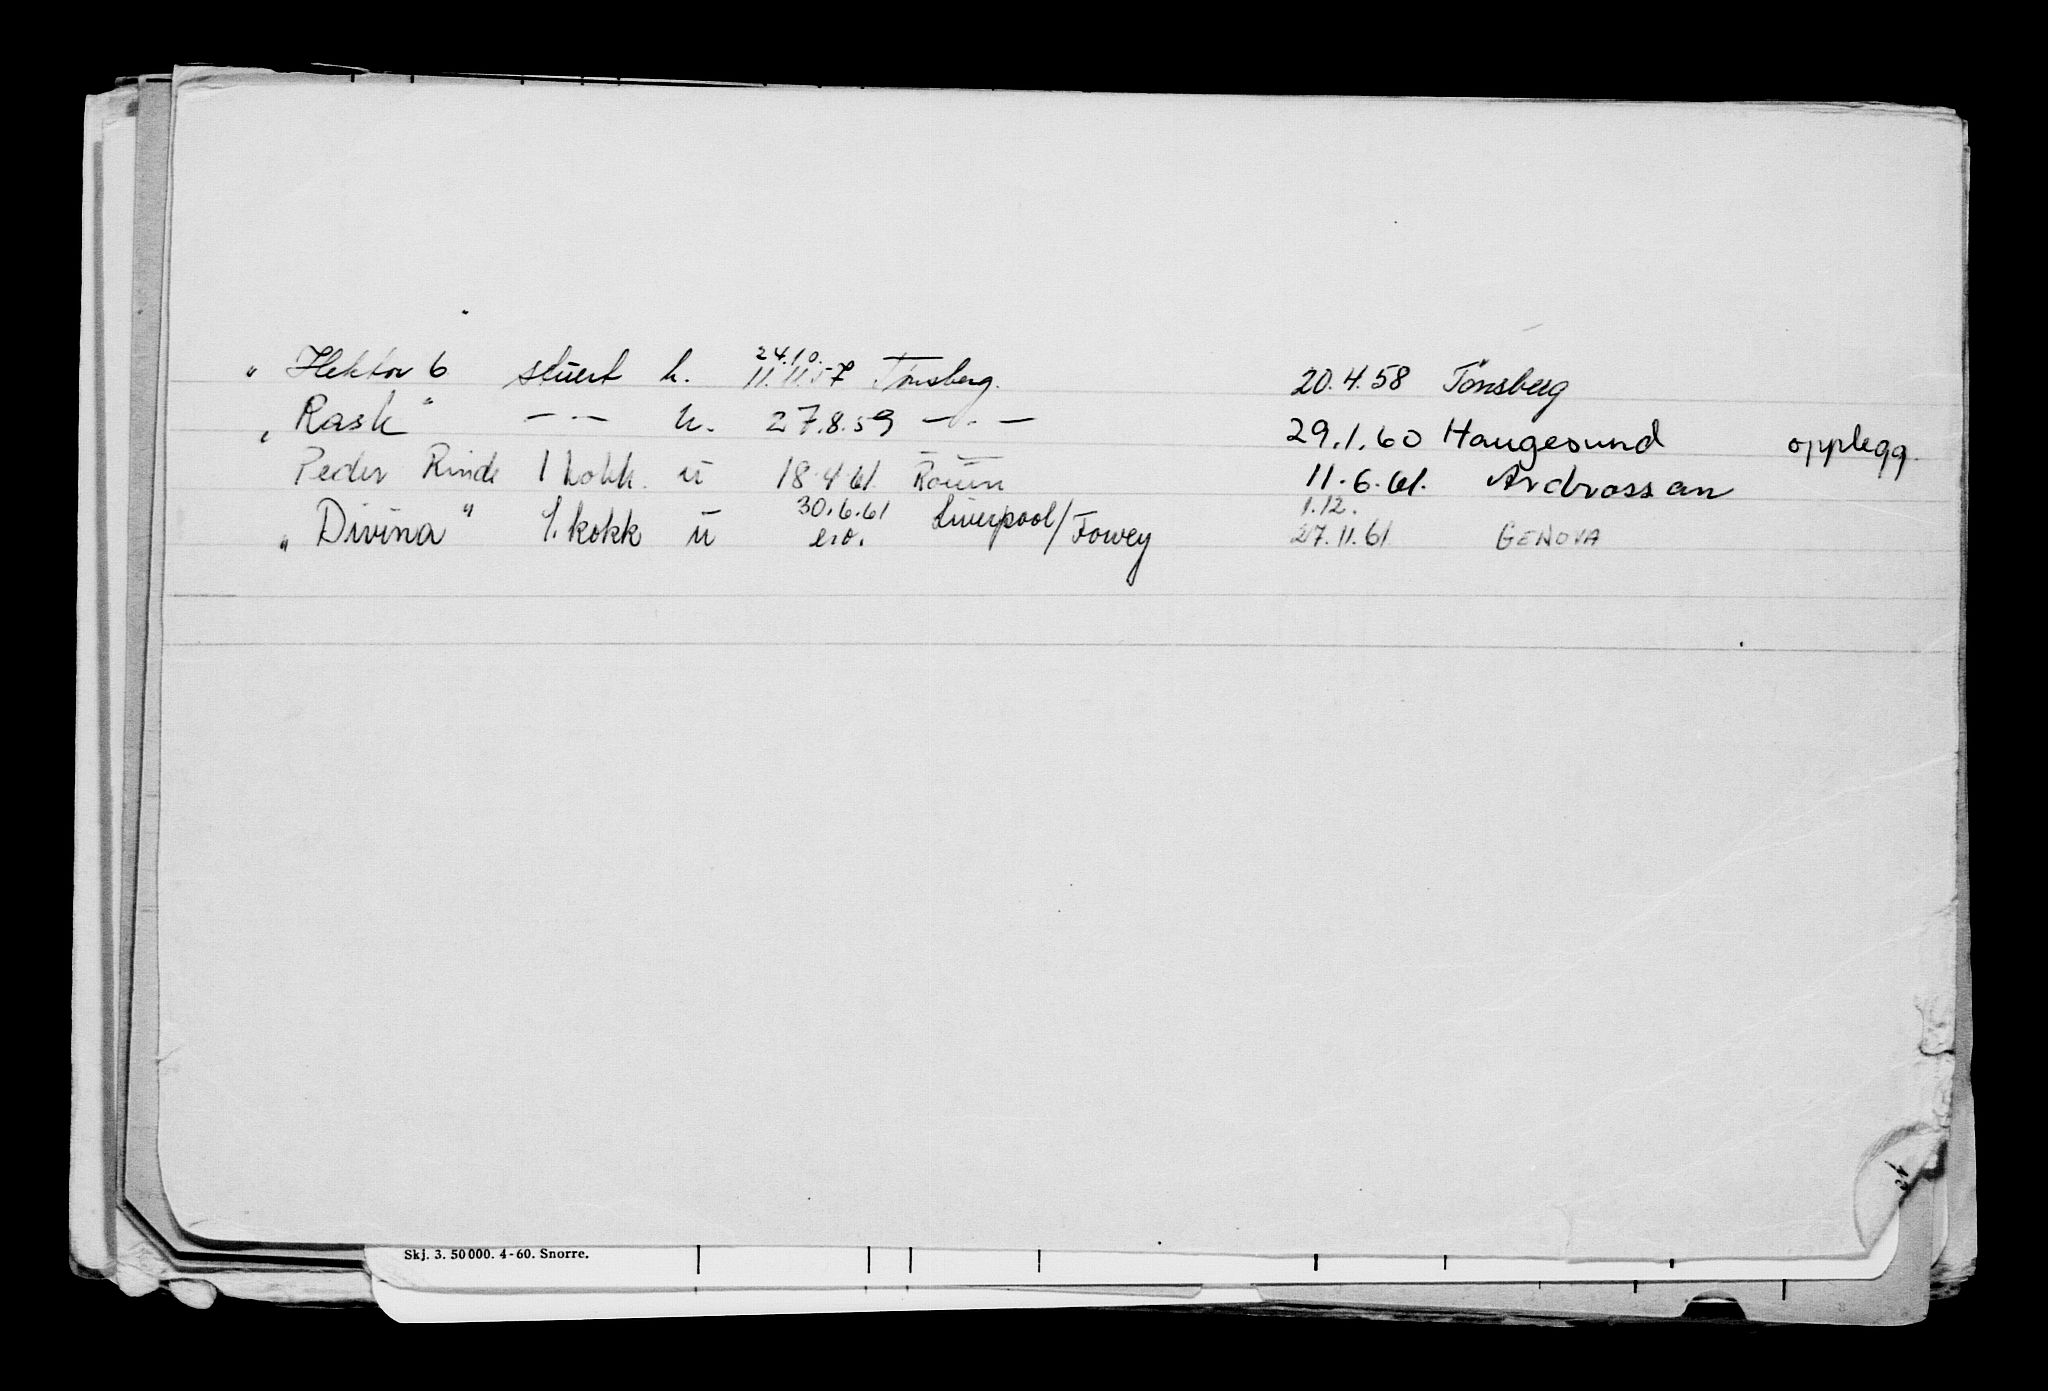 " Hektor 6 stuert h. 24.10. 11.11.57 Tønsberg. 20.4.58 Tønsberg
„ Rask " — " — h. 27.8.59 — " — 29.1.60 Haugesund opplegg.
Peder Rinde 1 kokk. u 18.4.61. Rouen 11.6.61. Ardrossan
„ Divina " 1. kokk u 30.6.61 e.o. Liverpool/Fowey 1.12. 27.11.61 GENOVA
Skj. 3. 50 000. 4-60. Snorre.